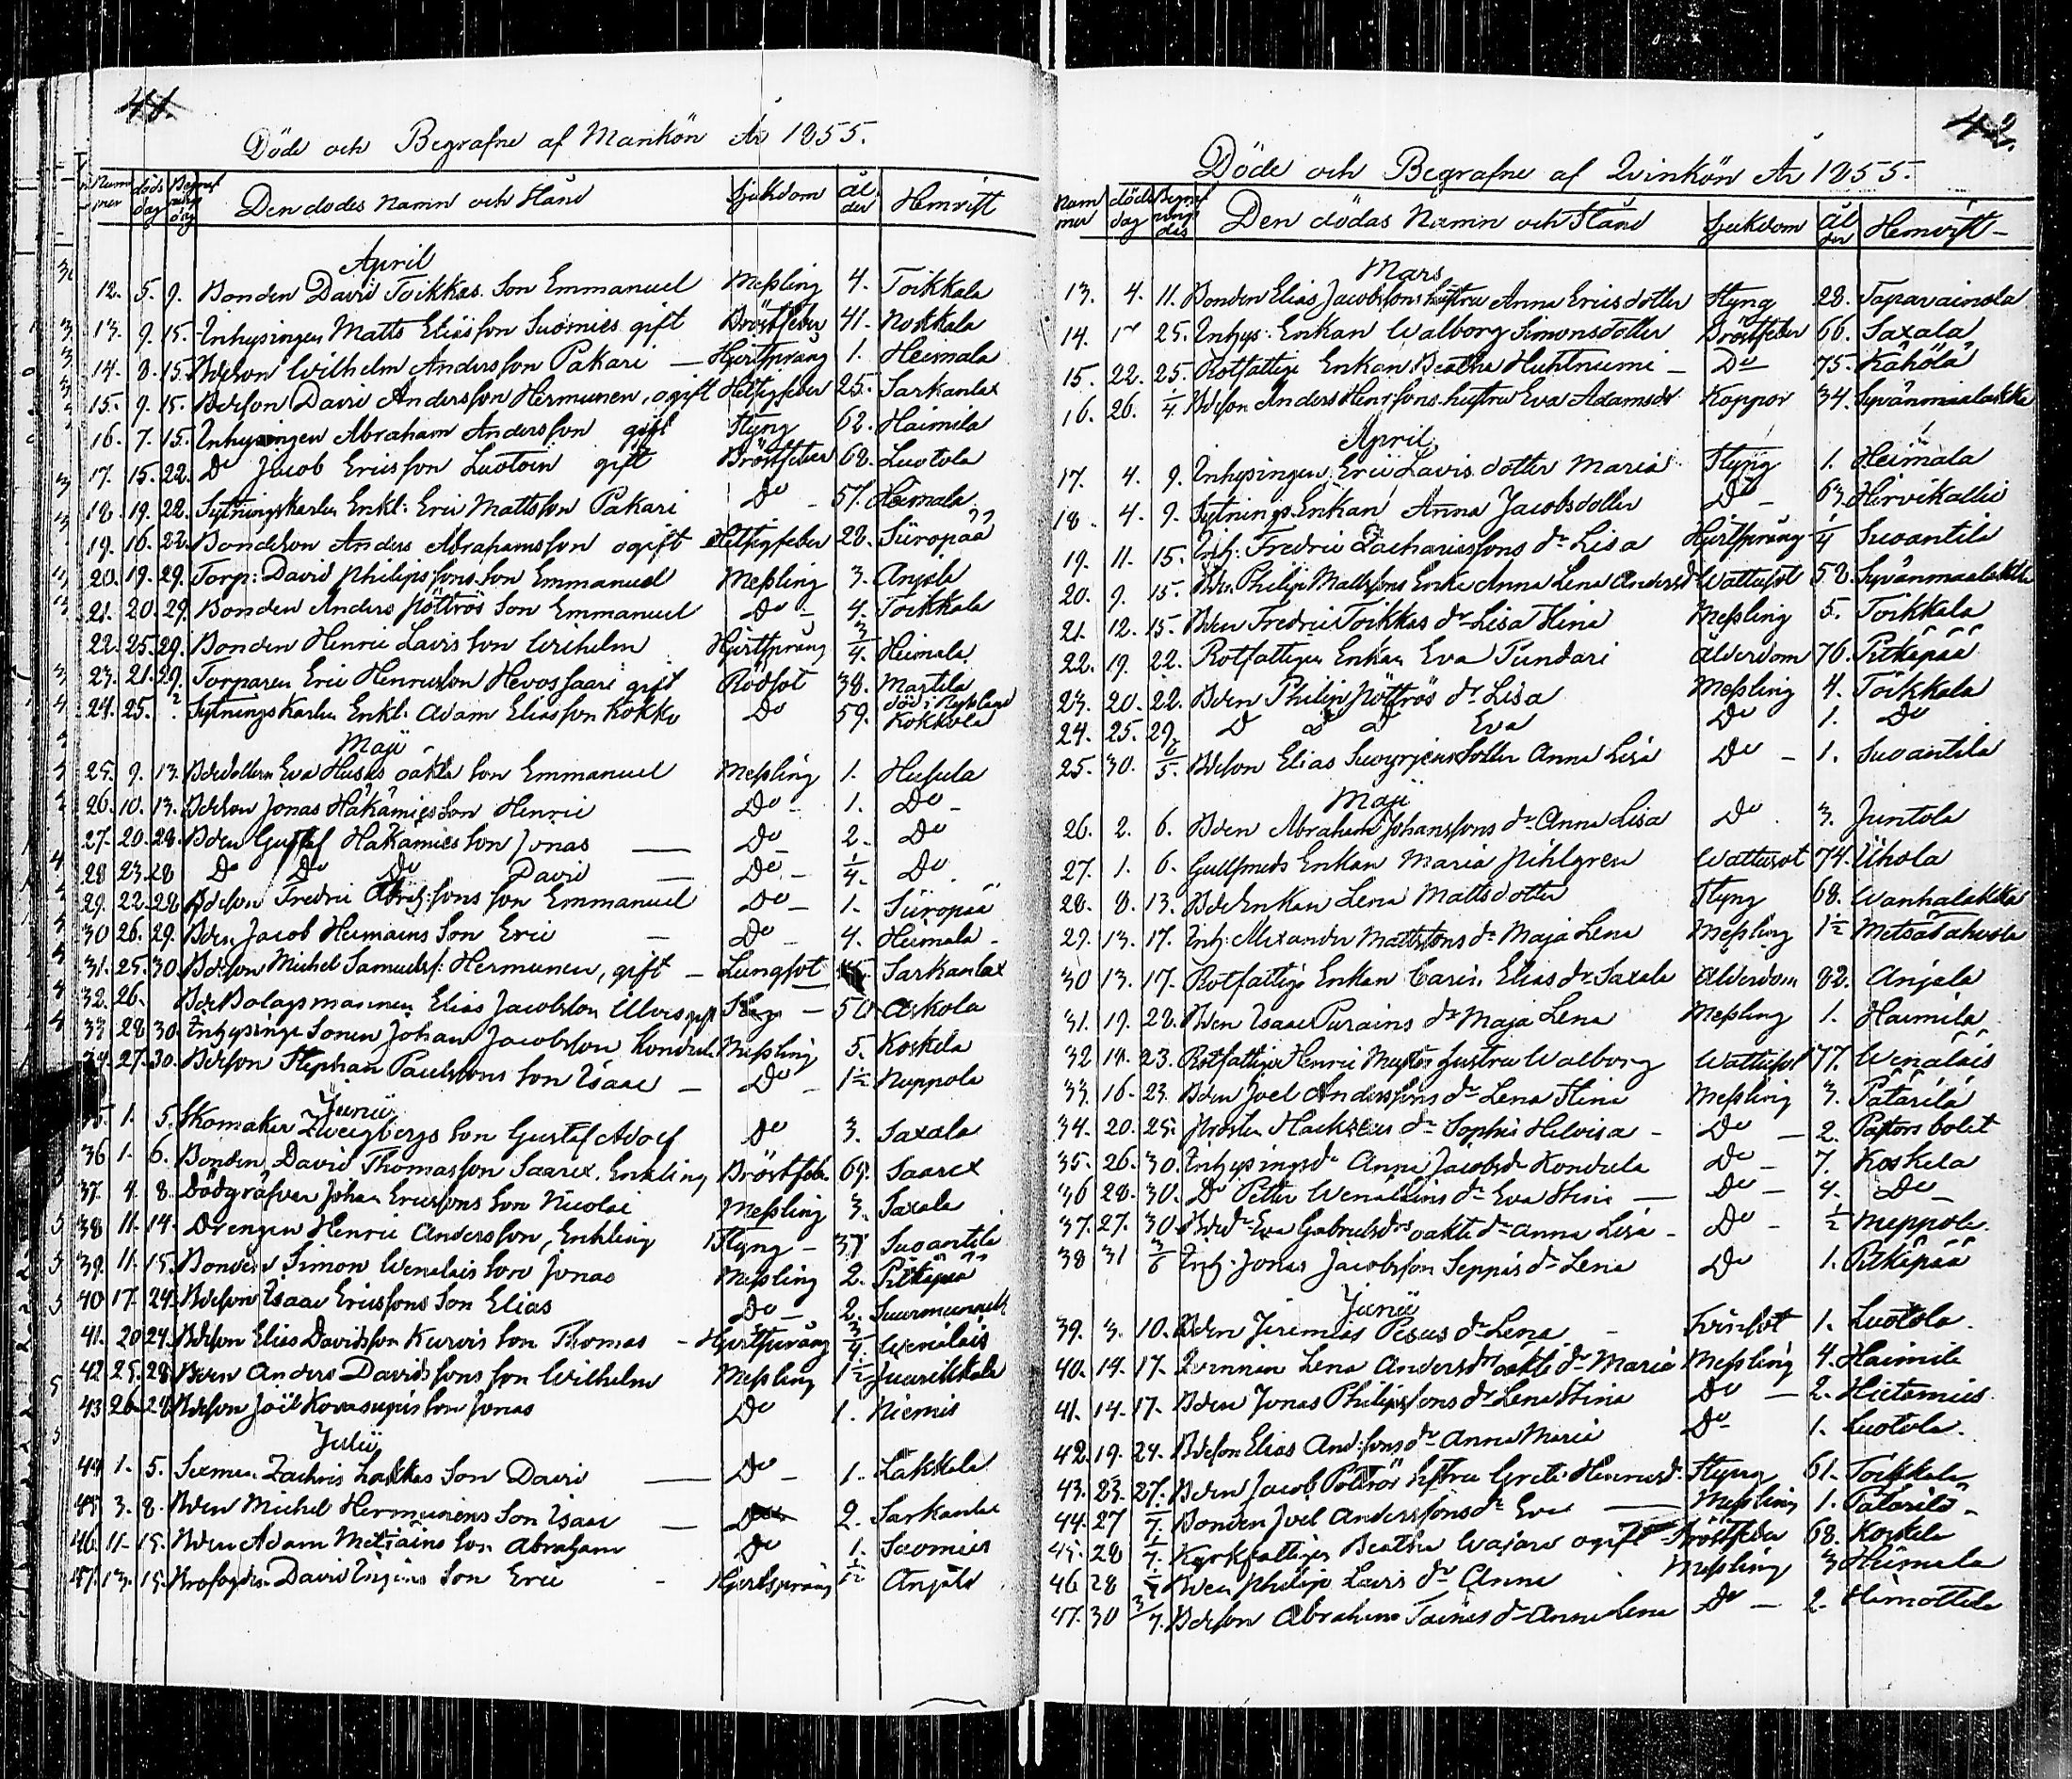 41.
Döde och Begrafne af Mankön År 1855.
Num mer döds dag Begraf nings dag Den dödes Namn och Stånd Sjukdom Ål der Hemvist
April
12. 5. 9. Bonden David Toikkas Son Emmanuel Meßling 4. Toikkala
13. 9. 15. Inhysingen Matts Eliasson Suomies gift Bröstfeber 41. Nokkala
14. 8. 15. Bdeson Wilhelm Andersson Pakari — Hjertsprång 1. Heimala
15. 9. 15. Bdeson David Andersson Hermunen, ogift Hetsigfeber 25. Sarkanlax
16. 7. 15. Inhysingen Abraham Andersson gift Styng 62. Haimila
17. 15. 22. Do Jacob Ericsson Luotoin gift Bröstfeber 68. Luotola
18. 19. 22. Sytningskarlen Enkl: Eric Mattsson Pakari Do - 57. Heimala
19. 16. 22. Bondeson Anders Abrahamsson ogift Hetsigfeber 22. Siiropää
20. 19. 29. Torp: David Philipssons Son Emmanuel Meßling 3. Anjala
21. 20. 29. Bonden Anders Pöttrös Son Emmanuel Do - 4. Toikkala
22. 25. 29. Bonden Henric Lavis Son Wilhelm Hjertsprång 3/4. Heimala
23. 21. 29. Torparen Eric Henricsson Hevossaari gift Rödsot 38. Martila
24. 25. ? Sytningskarlen Enkl: Adam Eliasson Kokko Do 59. död i Ryssland Kokkola
Maji
25. 9. 13. Bdedottern Eva Husus oäkta Son Emmanuel Meßling 1. Husula
26. 10. 13. Bdeson Jonas Häkämies Son Henric Do - 1. Do -
27. 20. 28. Bden Gustaf Häkämies Son Jonas — Do - 2. Do
28 23. 28 Do Do Do David — Do - 1/4. Do
29. 22. 28 Bdeson Fredric Abrah:sons son Emmanuel Do - 1. Siiropää
30 26. 29. Bden Jacob Heimains Son Eric — Do - 4. Heimala -
31. 25. 30. Bdeson Michel Samuelsf: Hermunen, gift — Lungsot Sarkanlax
32. 26. BdeBolagsmannen Elias Jacobsson Ulvis gift Styng — 50 Askola
33 28 30. Inhysinge Sonen Johan Jacobsson Kondula Meßling 5. Koskela
34. 27. 30. Bdeson Stephan Paulssons Son Isaac — Do - 1½ Nuppola
Junii
35. 1. 5. Skomakar Zweigbergs Son Gustaf Adolf Do 3. Saxala
36 1. 6. Bonden David Thomasson Saarex, Enkling Bröstfeber 69. Saarex
37. 4. 8. Dödgräfven Johan Ericssons Son Nicolai Meßling 3. Saxala
38 11. 14. Drengen Henric Andersson, Enkling Styng — 37 Suoantila
39. 11. 15. Bonden Simon Wenäläis Son Jonas Meßling 2. Pitkäpää
40 17. 24. Bdeson Isaac Ericssons Son Elias Do - 2.
41. 20 24. Bdeson Elias Davidsson Kurvis Son Thomas — Hjertsprång 3/4. Wenäläis
42 25. 28. Bden Anders Davidssons Son Wilhelm Meßling 1½ Juurikkala
43 26. 28 Bdeson Joël Kovasupis Son Jonas Do 1. Niemis
Julii
44 1. 5. Sexman Zachris Lakkas Son David — Do - 1. Lakkala
45 3. 8. Bden Michel Hermunens Son Isaac — Do 2. Sarkanlax
46 11. 15. Bden Adam Metiäins Son Abraham Do 1. Suomies
47. 13. 15. David Son Eric - Hjertsprång 1/12 Anjala
42.
Döde och Begrafne af Qvinkön År 1855.
Num mer döds dag Begraf nings dag Den dödas Namn och Stånd Sjukdom Ål der Hemvist —
Mars
13. 4. 11. Bonden Elias Jacobssons hustru Anna Ericsdotter Styng 28. Taparainola
14. 17 25. Inhys: Enkan Walborg Simonsdotter Bröstfeber 66. Saxala
15. 22. 25. Rotfattige Enkan Beatha Huhtniemi — Do 75. Kähölä
16. 26. 1/4. Bdeson Anders Henrssons hustru Eva Adamsdr Koppor 34. Sywänmaalakka
April
17. 4. 9. Inhysingen Eric Lavis dotter Maria Styng 1. Heimala
18. 4. 9. Sytnings Enkan Anna Jacobsdotter Do - 63. Hirvikallio
19. 11. 15. Inh: Fredric Zachariassons dr Lisa Hjertsprång 1/4 Suoantila
20. 9. 15. Bden Philip Mattssons Enka Anna Lena Andersdr Wattusot 52. Sywänmaalakka
21. 12. 15. Bden Fredric Toikkas dr Lisa Stina Meßling 5. Toikkala
22. 19. 22. Rotfattigen Enkan Eva Pundari Ålderdom 76. Pitkäpää
23. 20. 22. Bden Philip Pöttrös dr Lisa Meßling 4. Toikkala
24. 25. 29. D D D Eva Do 1. Do
25. 30. 6/5. Bdeson Elias Suoyrjens Dotter Anna Lisa Do - 1. Suoantila
Maji
26. 2. 6. Bden Abraham Johanssons dr Anna Lisa Do . 3. Juntola
27. 1. 6. Gullsmeds Enkan Maria Pihlgren Wattusot 74. Uhola
28. 8. 13. BdeEnkan Lena Mattsdotter Styng 68. Wanhalakka
29. 13. 17. Inh: Alexander Mattssons dr Maja Lena Meßling 1½ Metsätahvola
30 13. 17. Rotfattige Enkan Carin Elias dr Saxala Ålderdom 82. Anjala
31. 19. 22. Bden Isaac Purains dr Maja Lena Meßling 1. Haimila
32 19. 23. Rotfattigen Henric hustru Walborg Wattusot 77. Wenäläis
33. 16. 23. Bden Joel Anderssons dr Lena Stina Meßling 3. Pätärilä
34. 20. 25. Prosten Hackzells dr Sophie Helvisa — Do — 2. Pastorsbolet
35. 26. 30. Inhysingsdr Anna Jacobsdr Kondula Do - 7. Koskela
36 28. 30. Do Petter Wenäläins dr Eva Stina — Do - 4. Do
37. 27. 30. Bdedr Eva Gabrielsdrs oäkta dr Anna Lisa — Do - ½ Meppola
38 31 3/6 Inh: Jonas Jacobsson Seppäs dr Lena Do 1. Pitkäpää
Junii
39. 3. 10. Bden Jeremias Pesus dr Lena - Tvinsot 1. Luotola.
40. 14. 17. Qvinnan Lena Andersdrs oäkta dr Maria Meßling 4. Haimila
41. 14. 17. Bden Jonas Philipssons dr Lena Stina Do — 2. Hietamies
42. 19. 24. Bdeson Elias And:sons dr Anna Maria Do 1. Luotola.
43. 23. 27. Bden Jacob Pöttrös hstru Greta Henricsdr Styng 61. Toikkala
44. 27 1/7. Bonden Joel Anderssons dr Eva — Meßling 1. Pätärilä
45. 28 1/7. Kyrkfattigen Beatha Wajare ogift Bröstfeber 68. Koskela
46 28 1/7. Bden Philip Lavis dr Anna Meßling 3 Heimala
47. 30 3/7. Bdeson Abraham Toinas dr Anna Lena Do — 2. Himottula